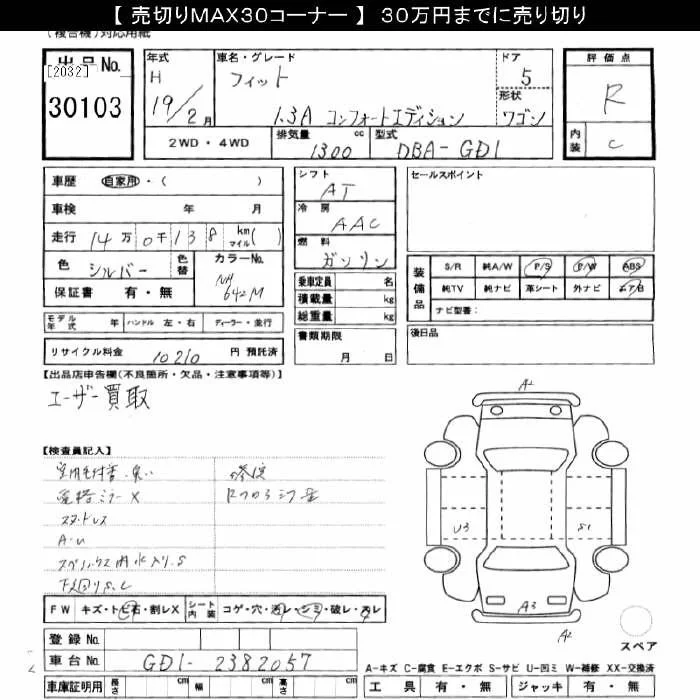 【 売切りMAX30コーナー 】 30万円までに売り切り
(複合機)対応用紙
出品No.
[2032]
30103
年式
H
19/2月
車名・グレード
フィット
1.3A コンフォートエディション
ドア
5
形状
ワゴン
2WD・4WD
排気量 1300 cc
型式 DBA-GD1
評価点
R
内装
C
車歴 自家用・( )
車検 年 月
走行 14万0千138 km マイル( )
色 シルバー
色替
カラーNo.
NH
642M
保証書 有・無
シフト
AT
冷房
AAC
燃料
ガソリン
乗車定員 名
積載量 kg
総重量 kg
セールスポイント
装備品
S/R 純A/W P/S P/W ABS
純TV 純ナビ 革シート 外ナビ エアB
ナビ型番:
モデル年式 年 ハンドル 左・右 ディーラー・並行
書類期限
月 日
後日品
リサイクル料金 10210 円 預託済
【出品店申告欄(不良箇所・欠品・注意事項等)】
ユーザー買取
【検査員記入】
ミラーX
スタッドレス
A-U
下廻りS.C
FW キズ・トビ石・割レX
シート内装 コゲ・穴・汚レ・シミ・破レ・スレ
A1
U3
S1
A3
A2
スペア
登録No.
車台No. GD1-2382057
車庫証明用 長さ cm 幅 cm 高さ cm
A-キズ C-腐食 E-エクボ S-サビ U-凹ミ W-補修 XX-交換済
工具 有・無 ジャッキ 有・無